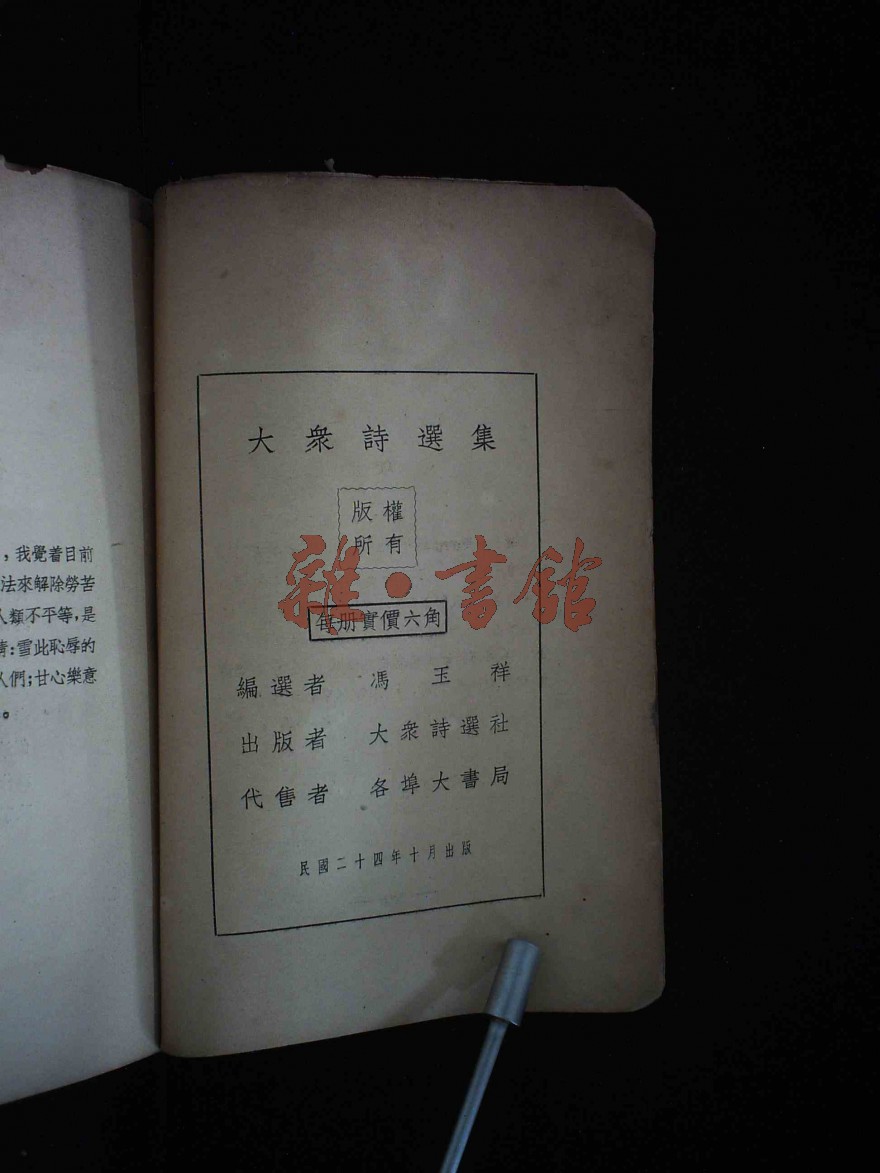 ，我覺着目前
法來解除勞苦
人類不平等，是
：雪此恥辱的
人們；甘心樂意
。
大衆詩選集
版權
所有
雜·書館
每册實價六角
編選者 馮玉祥
出版者 大衆詩選社
代售者 各埠大書局
民國二十四年十月出版